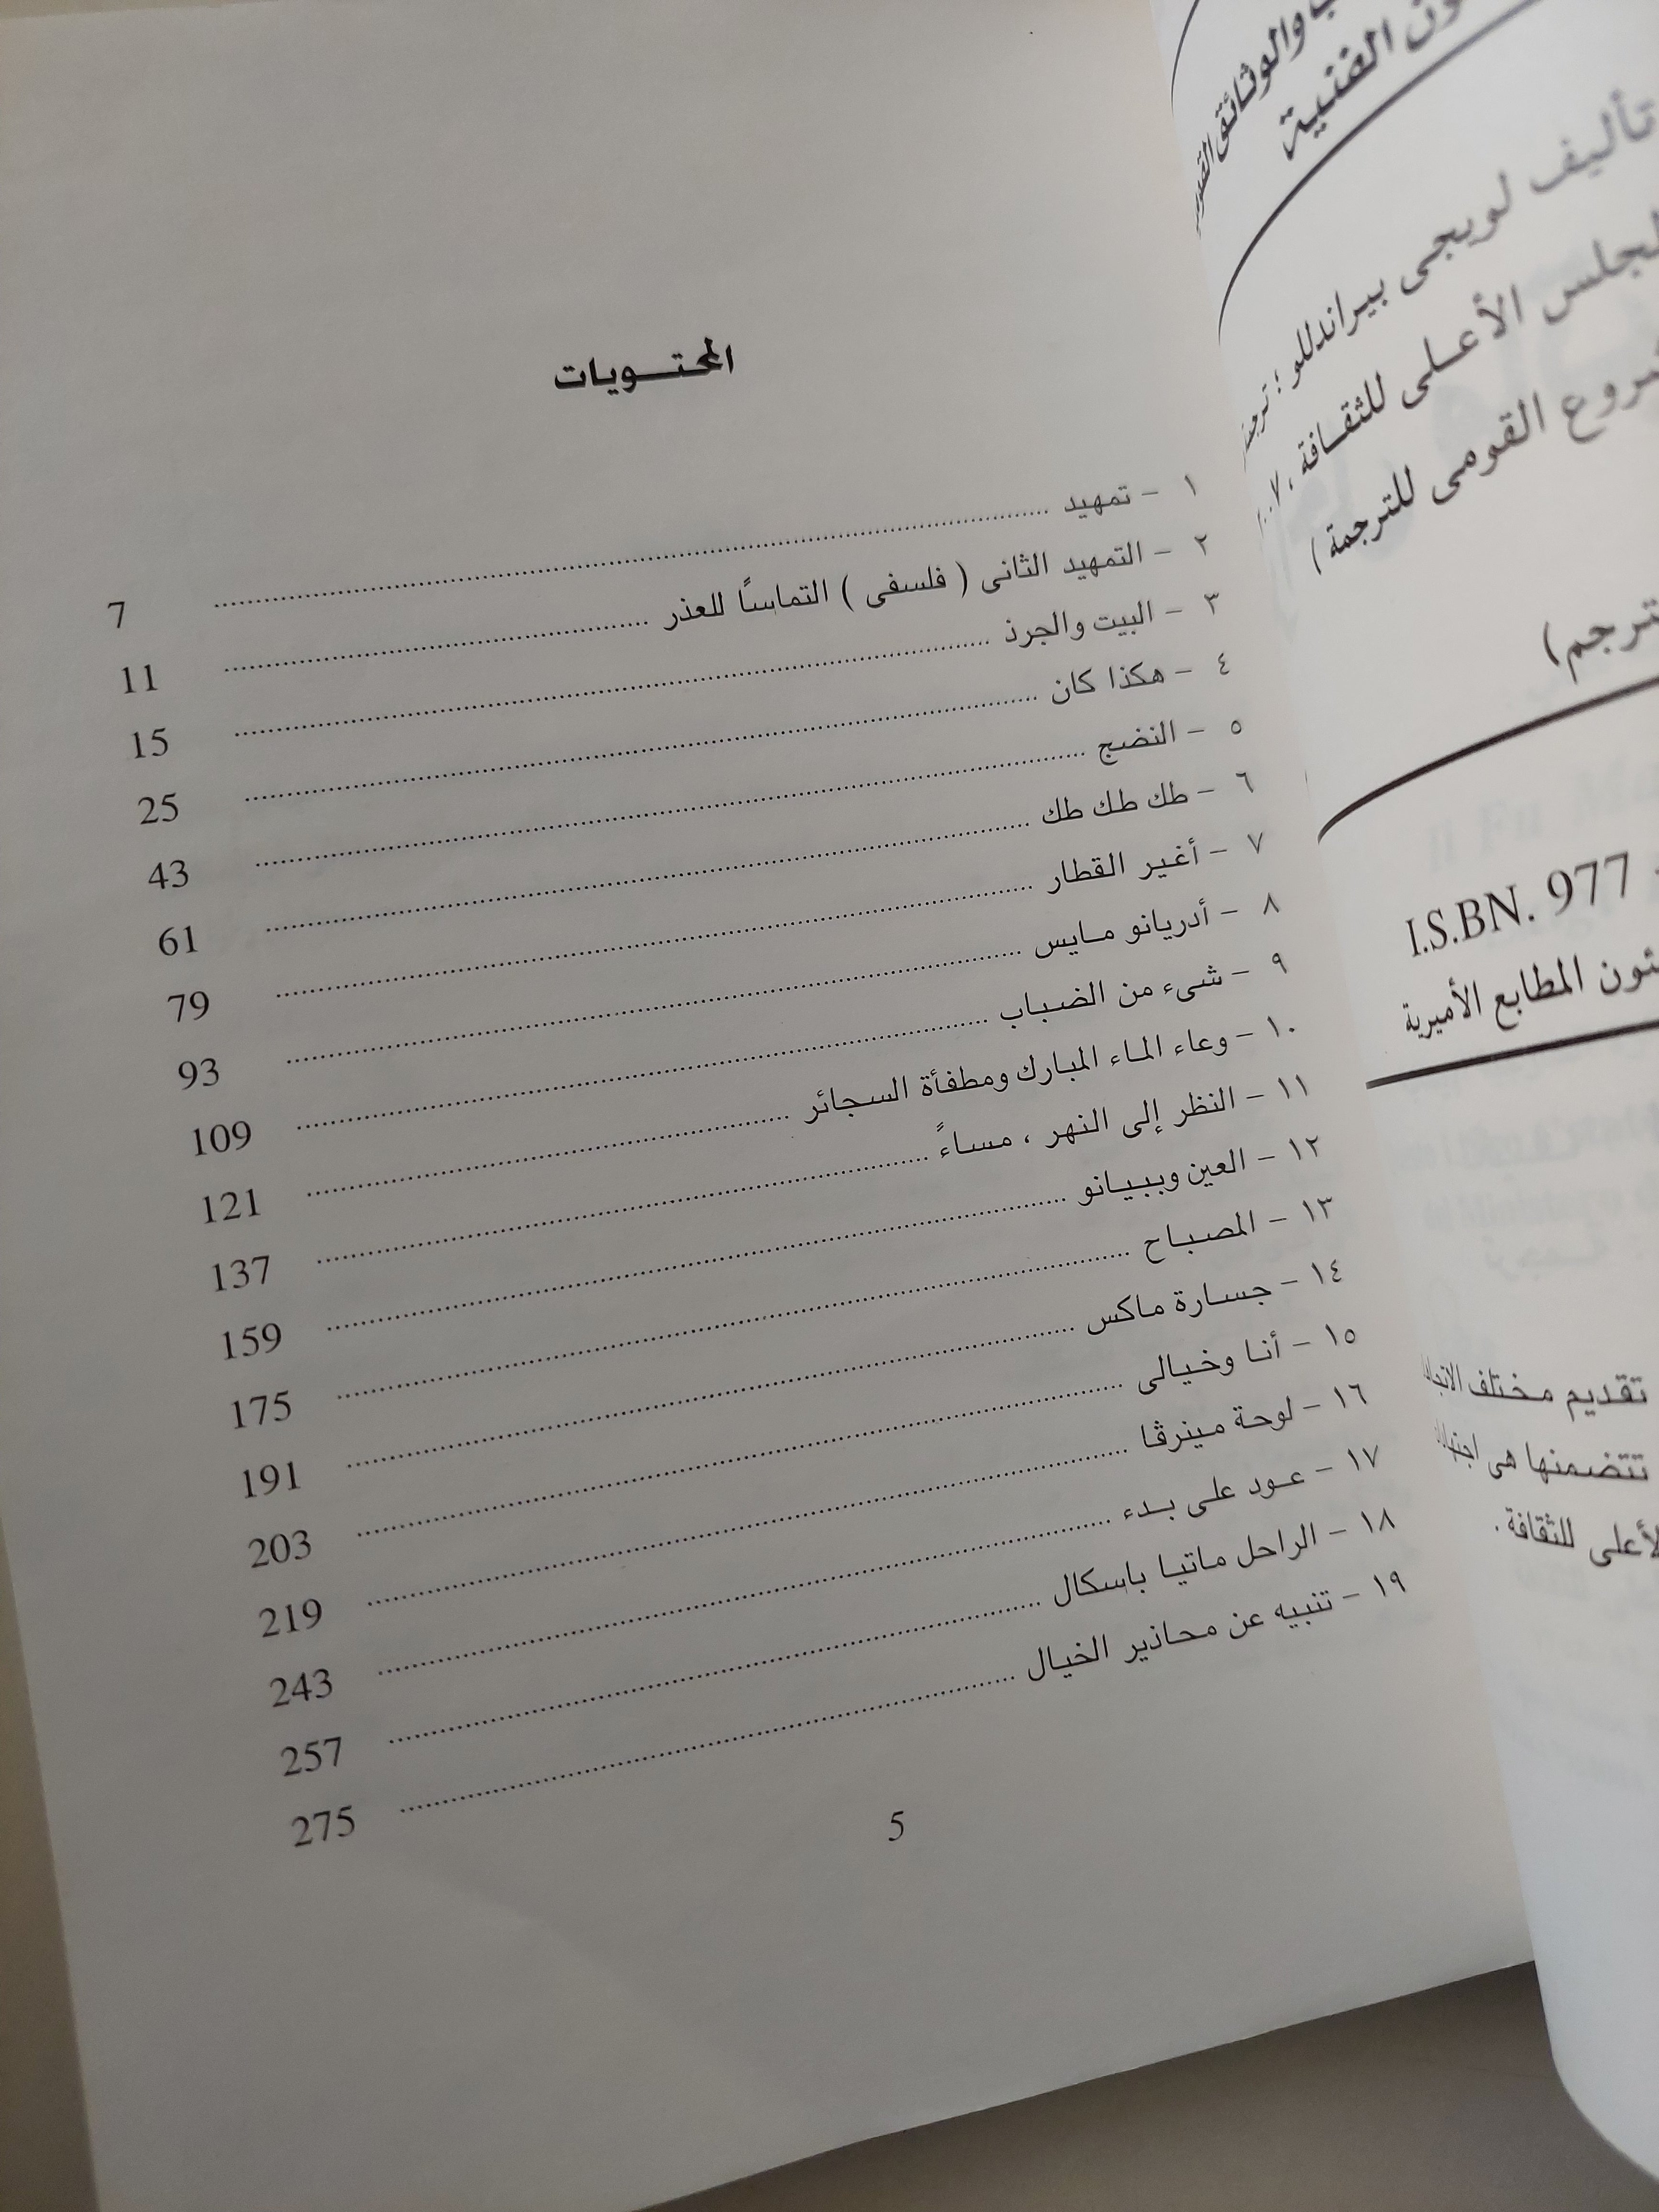 والوثائق
الفنية
تأليف لويجى بيراندللو ؛
الأعلى للثقافة ،
القومى للترجمة )
I.S.BN. 977
المطابع الأميرية
تقديم مختلف
تتضمنها هى
للثقافة .
المحتويات
١ - تمهيد 7
٢ - التمهيد الثانى ( فلسفى ) التماساً للعذر 11
٣ - البيت والجرذ 15
٤ - هكذا كان 25
٥ - النضج 43
٦ - طك طك طك 61
٧ - أغير القطار 79
٨ - أدريانو مايس 93
٩ - شىء من الضباب 109
١٠ - وعاء الماء المبارك ومطفأة السجائر 121
١١ - النظر إلى النهر ، مساءً 137
١٢ - العين وببيانو 159
١٣ - المصباح 175
١٤ - جسارة ماكس 191
١٥ - أنا وخيالى 203
١٦ - لوحة مينرڤا 219
١٧ - عود على بدء 243
١٨ - الراحل ماتيا باسكال 257
١٩ - تنبيه عن محاذير الخيال 275
5